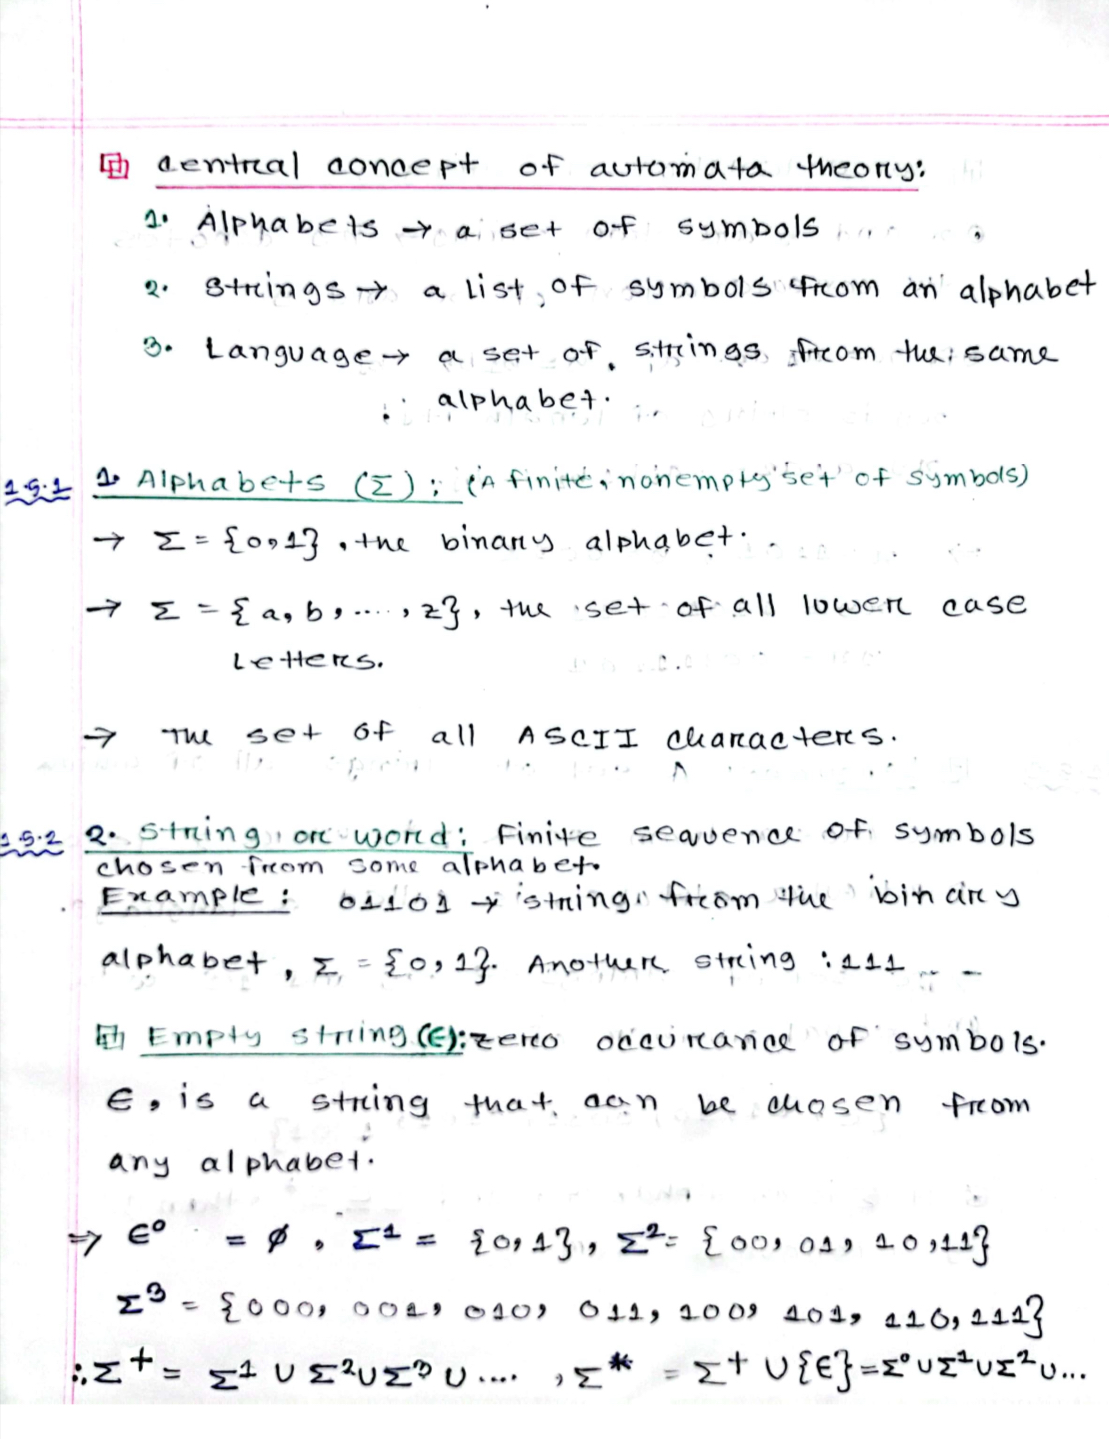 central concept of automata theory:
1. Alphabets → a set of symbols
2. Strings → a list of symbols from an alphabet
3. Language → a set of strings from the same
alphabet.
1.5.1 1. Alphabets (Σ): (A finite, nonempty set of symbols)
→ Σ = {0,1}, the binary alphabet.
→ Σ = {a, b, ...., z}, the set of all lower case
Letters.
→ The set of all ASCII characters.
1.5.2 2. String or word: Finite sequence of symbols
chosen from some alphabet.
Example: 01101 → string from the binary
alphabet, Σ = {0,1}. Another string : 111
Empty string (∈): zero occurance of symbols.
∈, is a string that can be chosen from
any alphabet.
⇒ ∈⁰ = ∅, Σ¹ = {0,1}, Σ² = {00, 01, 10, 11}
Σ³ = {000, 001, 010, 011, 100, 101, 110, 111}
∴ Σ⁺ = Σ¹ ∪ Σ² ∪ Σ³ ∪ ...., Σ* = Σ⁺ ∪ {∈} = Σ⁰ ∪ Σ¹ ∪ Σ² ∪ ...